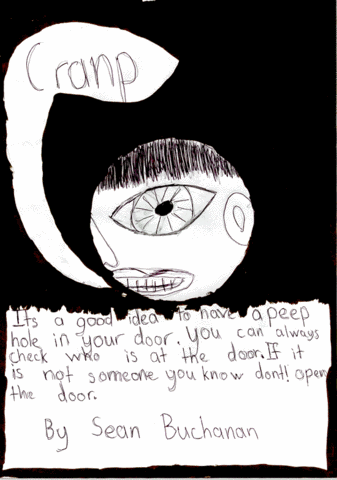 Cranp
Its a good idea to have a peep
hole in your door. You can always
check who is at the door. If it
is not someone you know dont! open
the door.
By Sean Buchanan